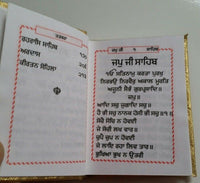 ਤਤਕਰਾ
ਰਹਰਾਸਿ ਸਾਹਿਬ
ਅਰਦਾਸ
ਕੀਰਤਨ ਸੋਹਿਲਾ
ਜਪੁ ਜੀ ੧ ਸਾਹਿਬ
ਜਪੁ ਜੀ ਸਾਹਿਬ
ੴ ਸਤਿਨਾਮੁ ਕਰਤਾ ਪੁਰਖੁ
ਨਿਰਭਉ ਨਿਰਵੈਰੁ ਅਕਾਲ ਮੂਰਤਿ
ਅਜੂਨੀ ਸੈਭੰ ਗੁਰਪ੍ਰਸਾਦਿ॥
ਜਪੁ॥
ਆਦਿ ਸਚੁ ਜੁਗਾਦਿ ਸਚੁ॥
ਹੈ ਭੀ ਸਚੁ ਨਾਨਕ ਹੋਸੀ ਭੀ ਸਚੁ॥੧॥
ਸੋਚੈ ਸੋਚਿ ਨ ਹੋਵਈ
ਜੇ ਸੋਚੀ ਲਖ ਵਾਰ॥
ਚੁਪੈ ਚੁਪ ਨ ਹੋਵਈ
ਜੇ ਲਾਇ ਰਹਾ ਲਿਵ ਤਾਰ॥
ਭੁਖਿਆ ਭੁਖ ਨ ਉਤਰੀ